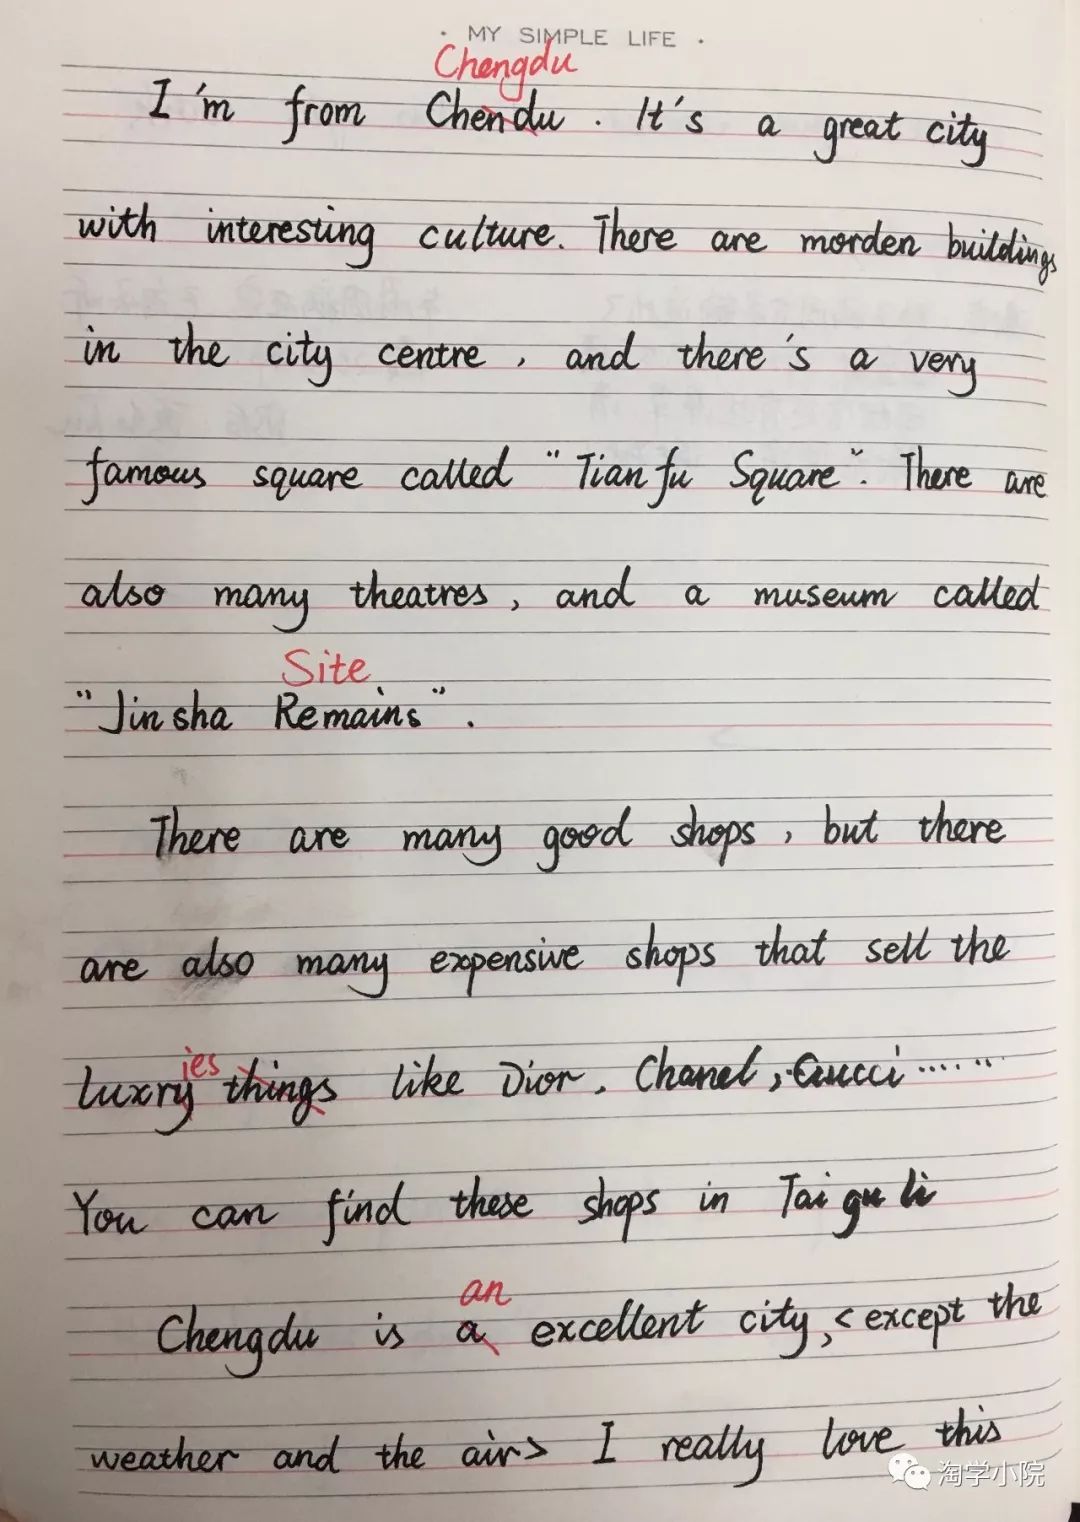 · MY SIMPLE LIFE ·
Chengdu
I'm from Chendu. It's a great city
with interesting culture. There are morden buildings
in the city centre, and there's a very
famous square called "Tian fu Square". There are
also many theatres, and a museum called
Site
"Jin sha Remains".
There are many good shops, but there
are also many expensive shops that sell the
ies
luxry things like Dior, Chanel, Gucci ······
You can find these shops in Tai gu li
an
Chengdu is a excellent city, < except the
weather and the air> I really love this
淘学小院